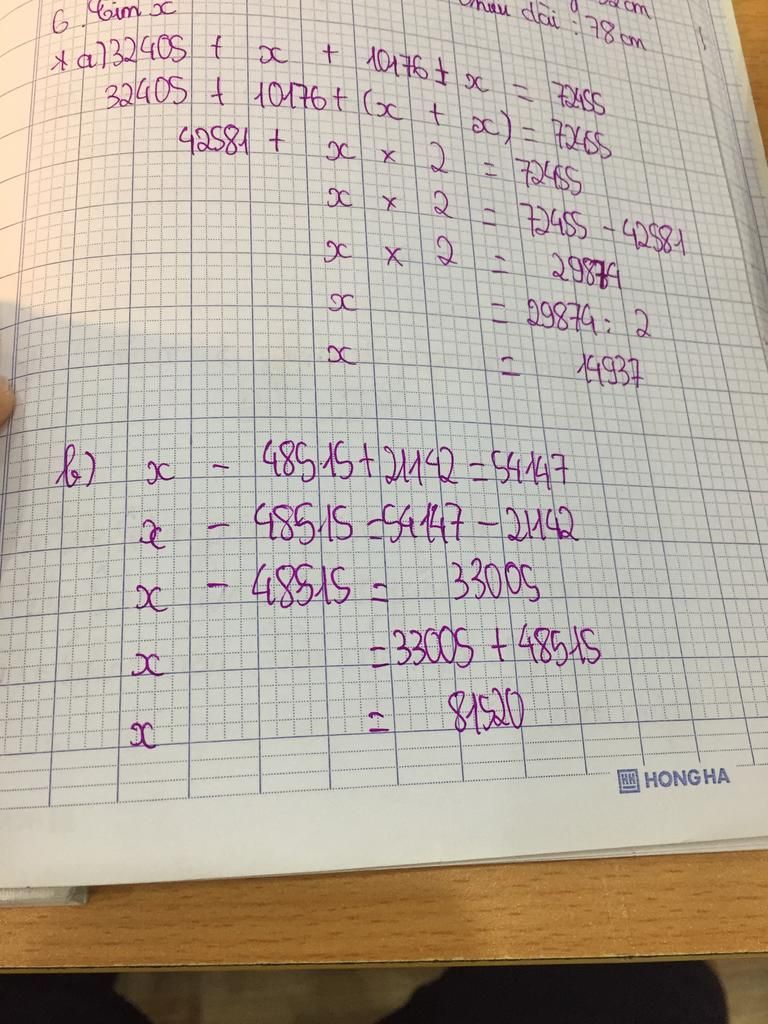 cm
chiều dài : 78 cm
6. Tìm x
* a) 32405 + x + 10176 + x = 72455
32405 + 10176 + (x + x) = 72455
42581 + x × 2 = 72455
x × 2 = 72455 - 42581
x × 2 = 29874
x = 29874 : 2
x = 14937
b) x - 48515 + 21142 = 54147
x - 48515 = 54147 - 21142
x - 48515 = 33005
x = 33005 + 48515
x = 81520
HH HONG HA